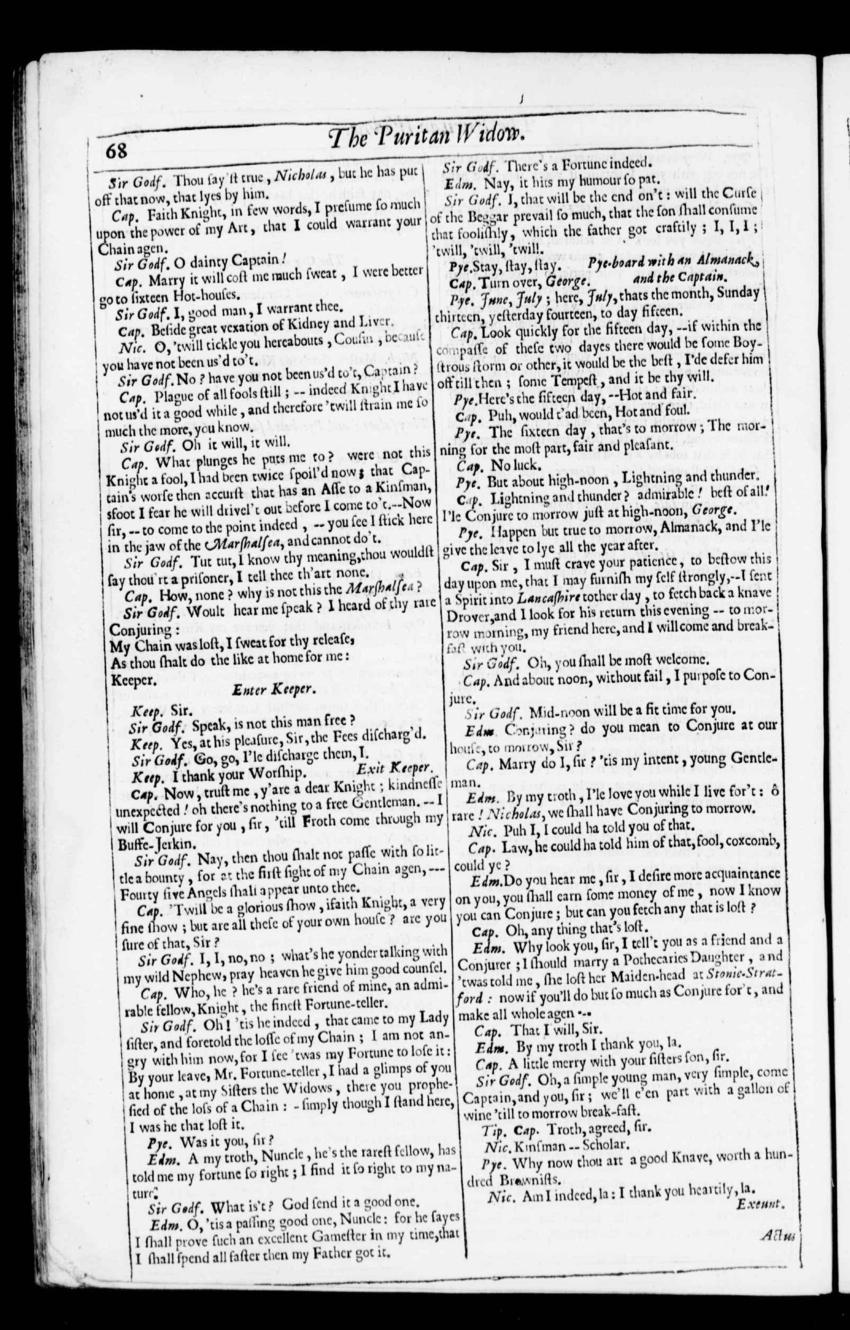 68
The Puritan Widow.
Sir Godf. Thou ſay'ſt true, Nicholas, but he has put
off that now, that lyes by him.
Cap. Faith Knight, in few words, I preſume ſo much
upon the power of my Art, that I could warrant your
Chain agen.
Sir Godf. O dainty Captain!
Cap. Marry it will coſt me much ſweat, I were better
go to ſixteen Hot-houſes.
Sir Godf. I, good man, I warrant thee.
Cap. Beſide great vexation of Kidney and Liver.
Nic. O, 'twill tickle you hereabouts, Couſin, becauſe
you have not been us'd to't.
Sir Godf. No? have you not been us'd to't, Captain?
Cap. Plague of all fools ſtill; -- indeed Knight I have
not us'd it a good while, and therefore 'twill ſtrain me ſo
much the more, you know.
Sir Godf. Oh it will, it will.
Cap. What plunges he puts me to? were not this
Knight a fool, I had been twice ſpoil'd now; that Cap-
tain's worſe then accurſt that has an Aſſe to a Kinſman,
sfoot I fear he will drivel't out before I come to't.--Now
ſir, -- to come to the point indeed, -- you ſee I ſtick here
in the jaw of the Marſhalſea, and cannot do't.
Sir Godf. Tut tut, I know thy meaning, thou wouldſt
ſay thou'rt a priſoner, I tell thee th'art none.
Cap. How, none? why is not this the Marſhalſea?
Sir Godf. Woult hear me ſpeak? I heard of thy rare
Conjuring:
My Chain was loſt, I ſweat for thy releaſe,
As thou ſhalt do the like at home for me:
Keeper.
Enter Keeper.
Keep. Sir.
Sir Godf. Speak, is not this man free?
Keep. Yes, at his pleaſure, Sir, the Fees diſcharg'd.
Sir Godf. Go, go, I'le diſcharge them, I.
Keep. I thank your Worſhip. Exit Keeper.
Cap. Now, truſt me, y'are a dear Knight; kindneſſe
unexpected! oh there's nothing to a free Gentleman. -- I
will Conjure for you, ſir, 'till Froth come through my
Buffe-Jerkin.
Sir Godf. Nay, then thou ſhalt not paſſe with ſo lit-
tle a bounty, for at the firſt ſight of my Chain agen, ---
Fourty five Angels ſhall appear unto thee.
Cap. 'Twill be a glorious ſhow, ifaith Knight, a very
fine ſhow; but are all theſe of your own houſe? are you
ſure of that, Sir?
Sir Godf. I, I, no, no; what's he yonder talking with
my wild Nephew, pray heaven he give him good counſel.
Cap. Who, he? he's a rare friend of mine, an admi-
rable fellow, Knight, the fineſt Fortune-teller.
Sir Godf. Oh! 'tis he indeed, that came to my Lady
ſiſter, and foretold the loſſe of my Chain; I am not an-
gry with him now, for I ſee 'twas my Fortune to loſe it:
By your leave, Mr. Fortune-teller, I had a glimps of you
at home, at my Siſters the Widows, there you prophe-
ſied of the loſs of a Chain: - ſimply though I ſtand here,
I was he that loſt it.
Pye. Was it you, ſir?
Edm. A my troth, Nuncle, he's the rareſt fellow, has
told me my fortune ſo right; I find it ſo right to my na-
ture.
Sir Godf. What is't? God ſend it a good one.
Edm. O, 'tis a paſſing good one, Nuncle: for he ſayes
I ſhall prove ſuch an excellent Gameſter in my time, that
I ſhall ſpend all faſter then my Father got it.
Sir Godf. There's a Fortune indeed.
Edm. Nay, it hits my humour ſo pat.
Sir Godf. I, that will be the end on't: will the Curſe
of the Beggar prevail ſo much, that the ſon ſhall conſume
that fooliſhly, which the father got craftily; I, I, I;
'twill, 'twill, 'twill.
Pye. Stay, ſtay, ſtay. Pye-board with an Almanack,
Cap. Turn over, George. and the Captain.
Pye. June, July; here, July, thats the month, Sunday
thirteen, yeſterday fourteen, to day fifteen.
Cap. Look quickly for the fifteen day, --if within the
compaſſe of theſe two dayes there would be ſome Boy-
ſtrous ſtorm or other, it would be the beſt, I'de defer him
off till then; ſome Tempeſt, and it be thy will.
Pye. Here's the fifteen day, --Hot and fair.
Cap. Puh, would t'ad been, Hot and foul.
Pye. The ſixteen day, that's to morrow; The mor-
ning for the moſt part, fair and pleaſant.
Cap. No luck.
Pye. But about high-noon, Lightning and thunder.
Cap. Lightning and thunder? admirable! beſt of all!
I'le Conjure to morrow juſt at high-noon, George.
Pye. Happen but true to morrow, Almanack, and I'le
give the leave to lye all the year after.
Cap. Sir, I muſt crave your patience, to beſtow this
day upon me, that I may furniſh my ſelf ſtrongly,--I ſent
a Spirit into Lancaſhire tother day, to fetch back a knave
Drover, and I look for his return this evening -- to mor-
row morning, my friend here, and I will come and break-
faſt with you.
Sir Godf. Oh, you ſhall be moſt welcome.
Cap. And about noon, without fail, I purpoſe to Con-
jure.
Sir Godf. Mid-noon will be a fit time for you.
Edm. Conjuring? do you mean to Conjure at our
houſe, to morrow, Sir?
Cap. Marry do I, ſir? 'tis my intent, young Gentle-
man.
Edm. By my troth, I'le love you while I live for't: ô
rare! Nicholas, we ſhall have Conjuring to morrow.
Nic. Puh I, I could ha told you of that.
Cap. Law, he could ha told him of that, fool, coxcomb,
could ye?
Edm. Do you hear me, ſir, I deſire more acquaintance
on you, you ſhall earn ſome money of me, now I know
you can Conjure; but can you fetch any that is loſt?
Cap. Oh, any thing that's loſt.
Edm. Why look you, ſir, I tell't you as a friend and a
Conjurer; I ſhould marry a Pothecaries Daughter, and
'twas told me, ſhe loſt her Maiden-head at Stonie-Strat-
ford: now if you'll do but ſo much as Conjure for't, and
make all whole agen --.
Cap. That I will, Sir.
Edm. By my troth I thank you, la.
Cap. A little merry with your ſiſters ſon, ſir.
Sir Godf. Oh, a ſimple young man, very ſimple, come
Captain, and you, ſir; we'll e'en part with a gallon of
wine 'till to morrow break-faſt.
Tip. Cap. Troth, agreed, ſir.
Nic. Kinſman -- Scholar.
Pye. Why now thou art a good Knave, worth a hun-
dred Browniſts.
Nic. Am I indeed, la: I thank you heartily, la.
Exeunt.
Actus